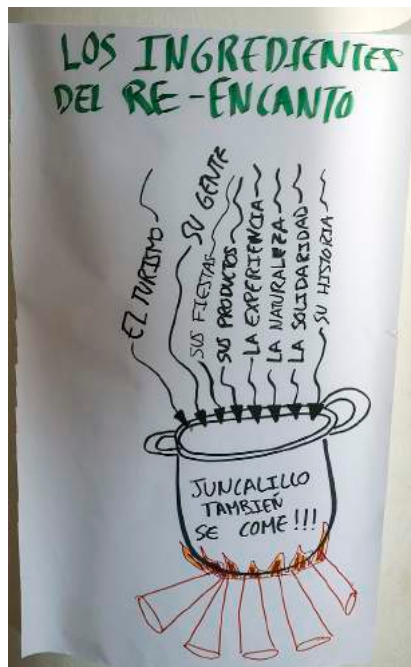 LOS INGREDIENTES
DEL RE-ENCANTO
EL TURISMO
SU GENTE
SUS FIESTAS
SUS PRODUCTOS
LA EXPERIENCIA
LA NATURALEZA
LA SOLIDARIDAD
SU HISTORIA
JUNCALILLO
TAMBIEÑ
SE COME!!!